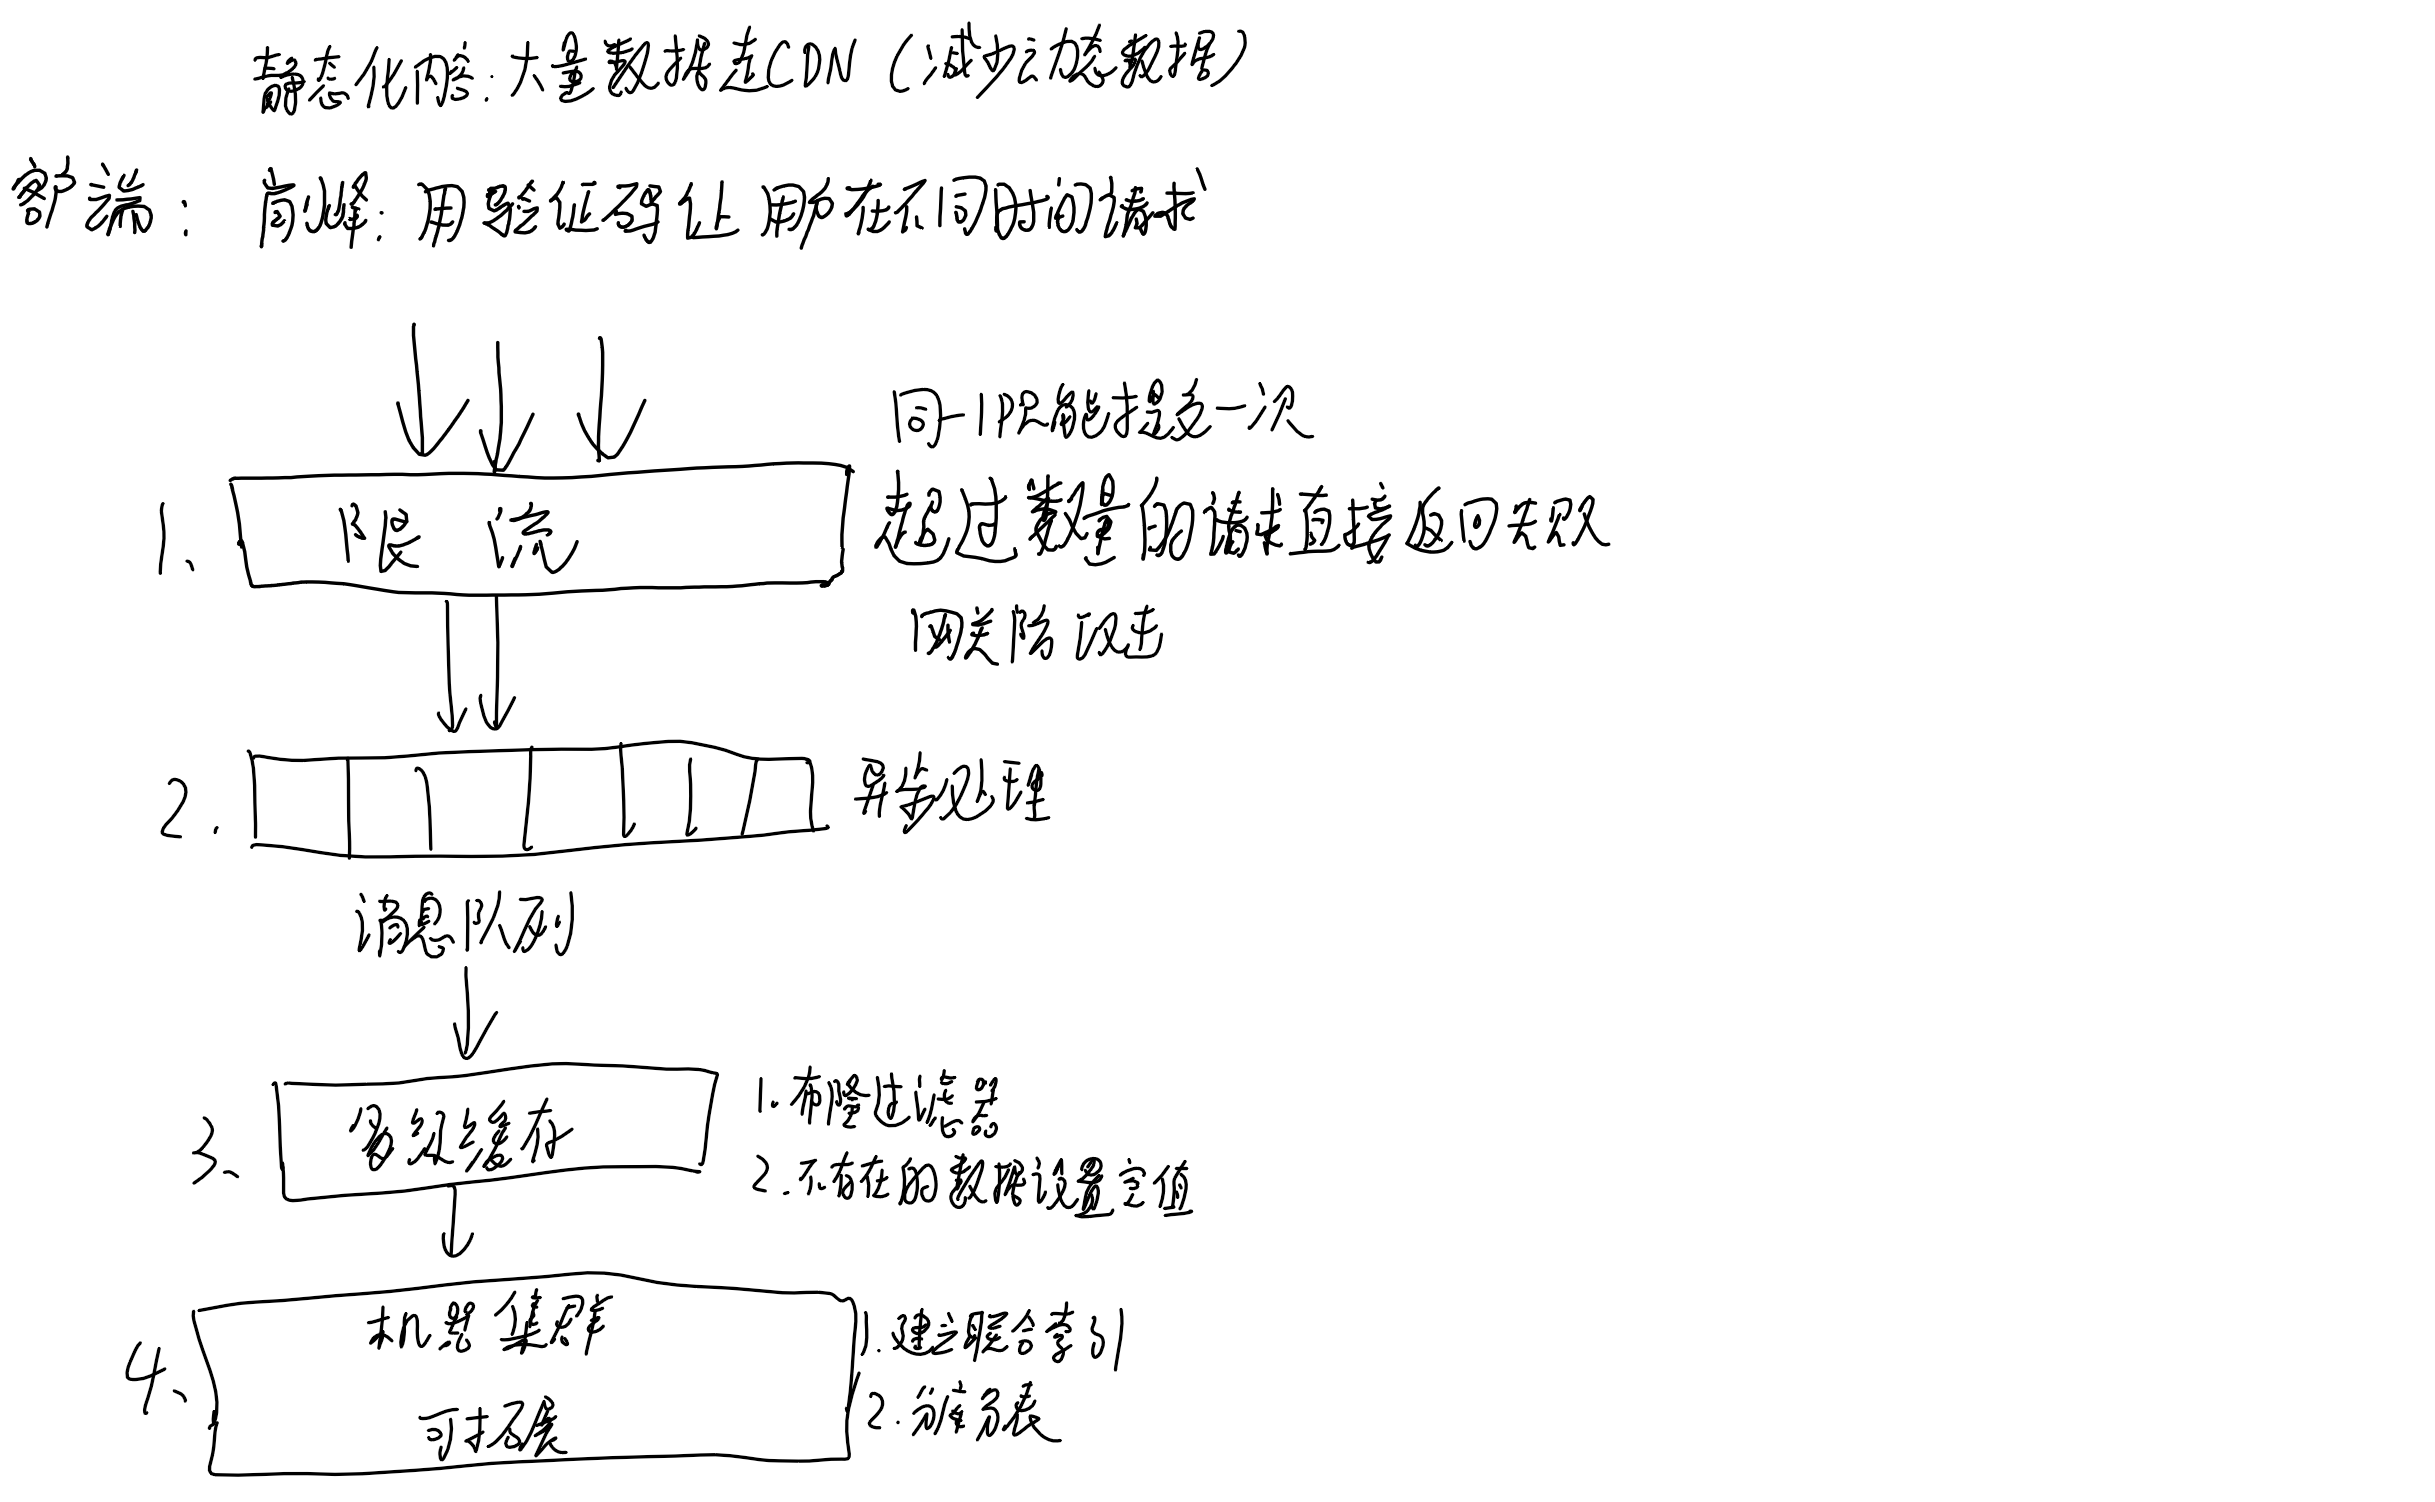 静态化内容:大量数据走CDN(减少访问后端数据)
客户端: 前端:用验证码等让用户在不同时间请求
同一IP只能提交一次
1. 限流
超过数量的请求直接返回失败
网关防攻击
2. 异步处理
消息队列
3. 多级缓存
1.布隆过滤器
2.不存在的数据设置空值
4. 机器集群
可扩展
1.建立联合索引
2.分库分表